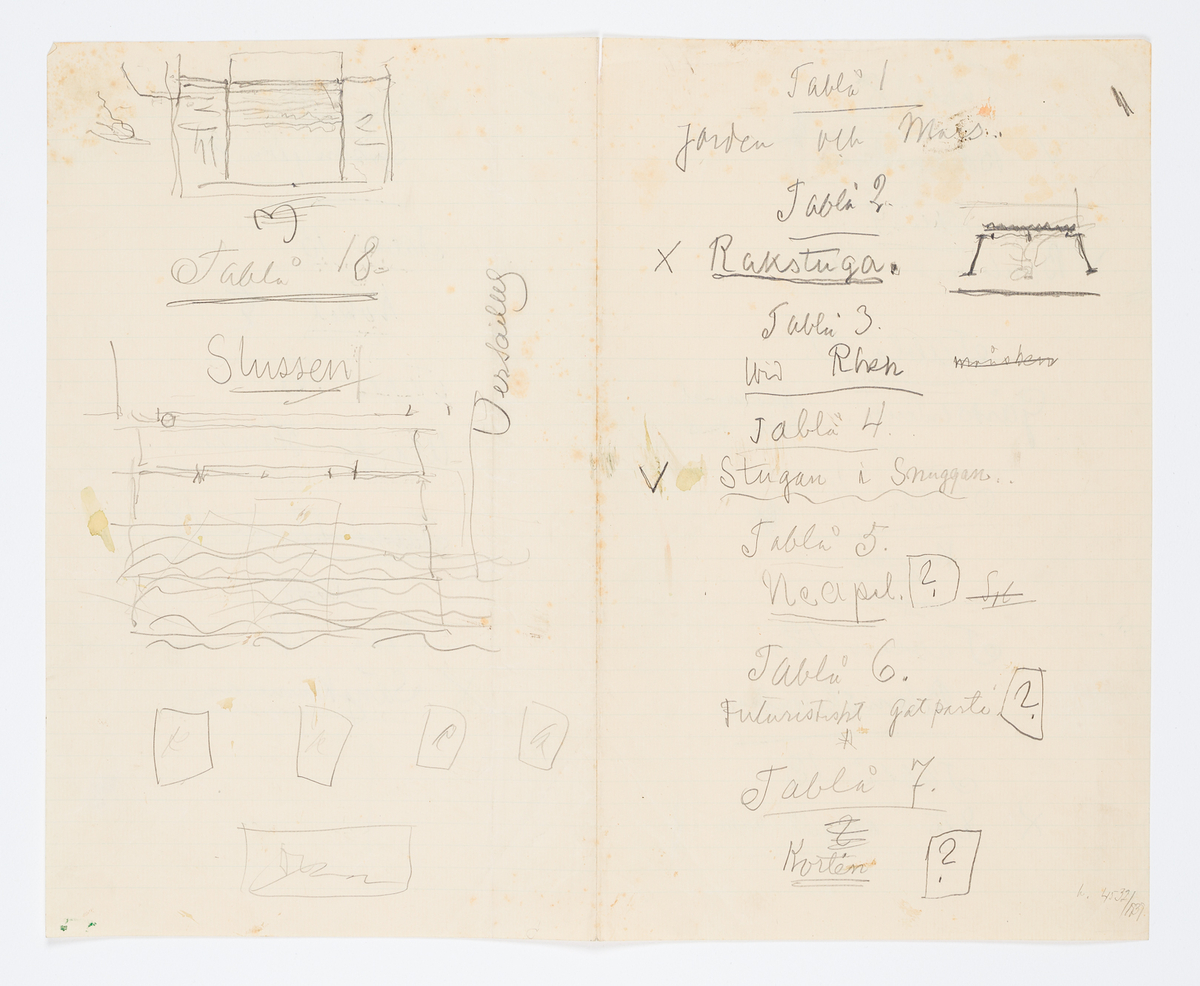 Tablå 18.
Slussen
Versailles
Tablå 1
Jorden och Mars..
Tablå 2.
X Rakstuga.
Tablå 3.
Wid Rhen
Tablå 4.
V Stugan i Snuggan..
Tablå 5.
Neapel. ?
Tablå 6.
Futuristiskt gatparti ?
Tablå 7.
Korten ?